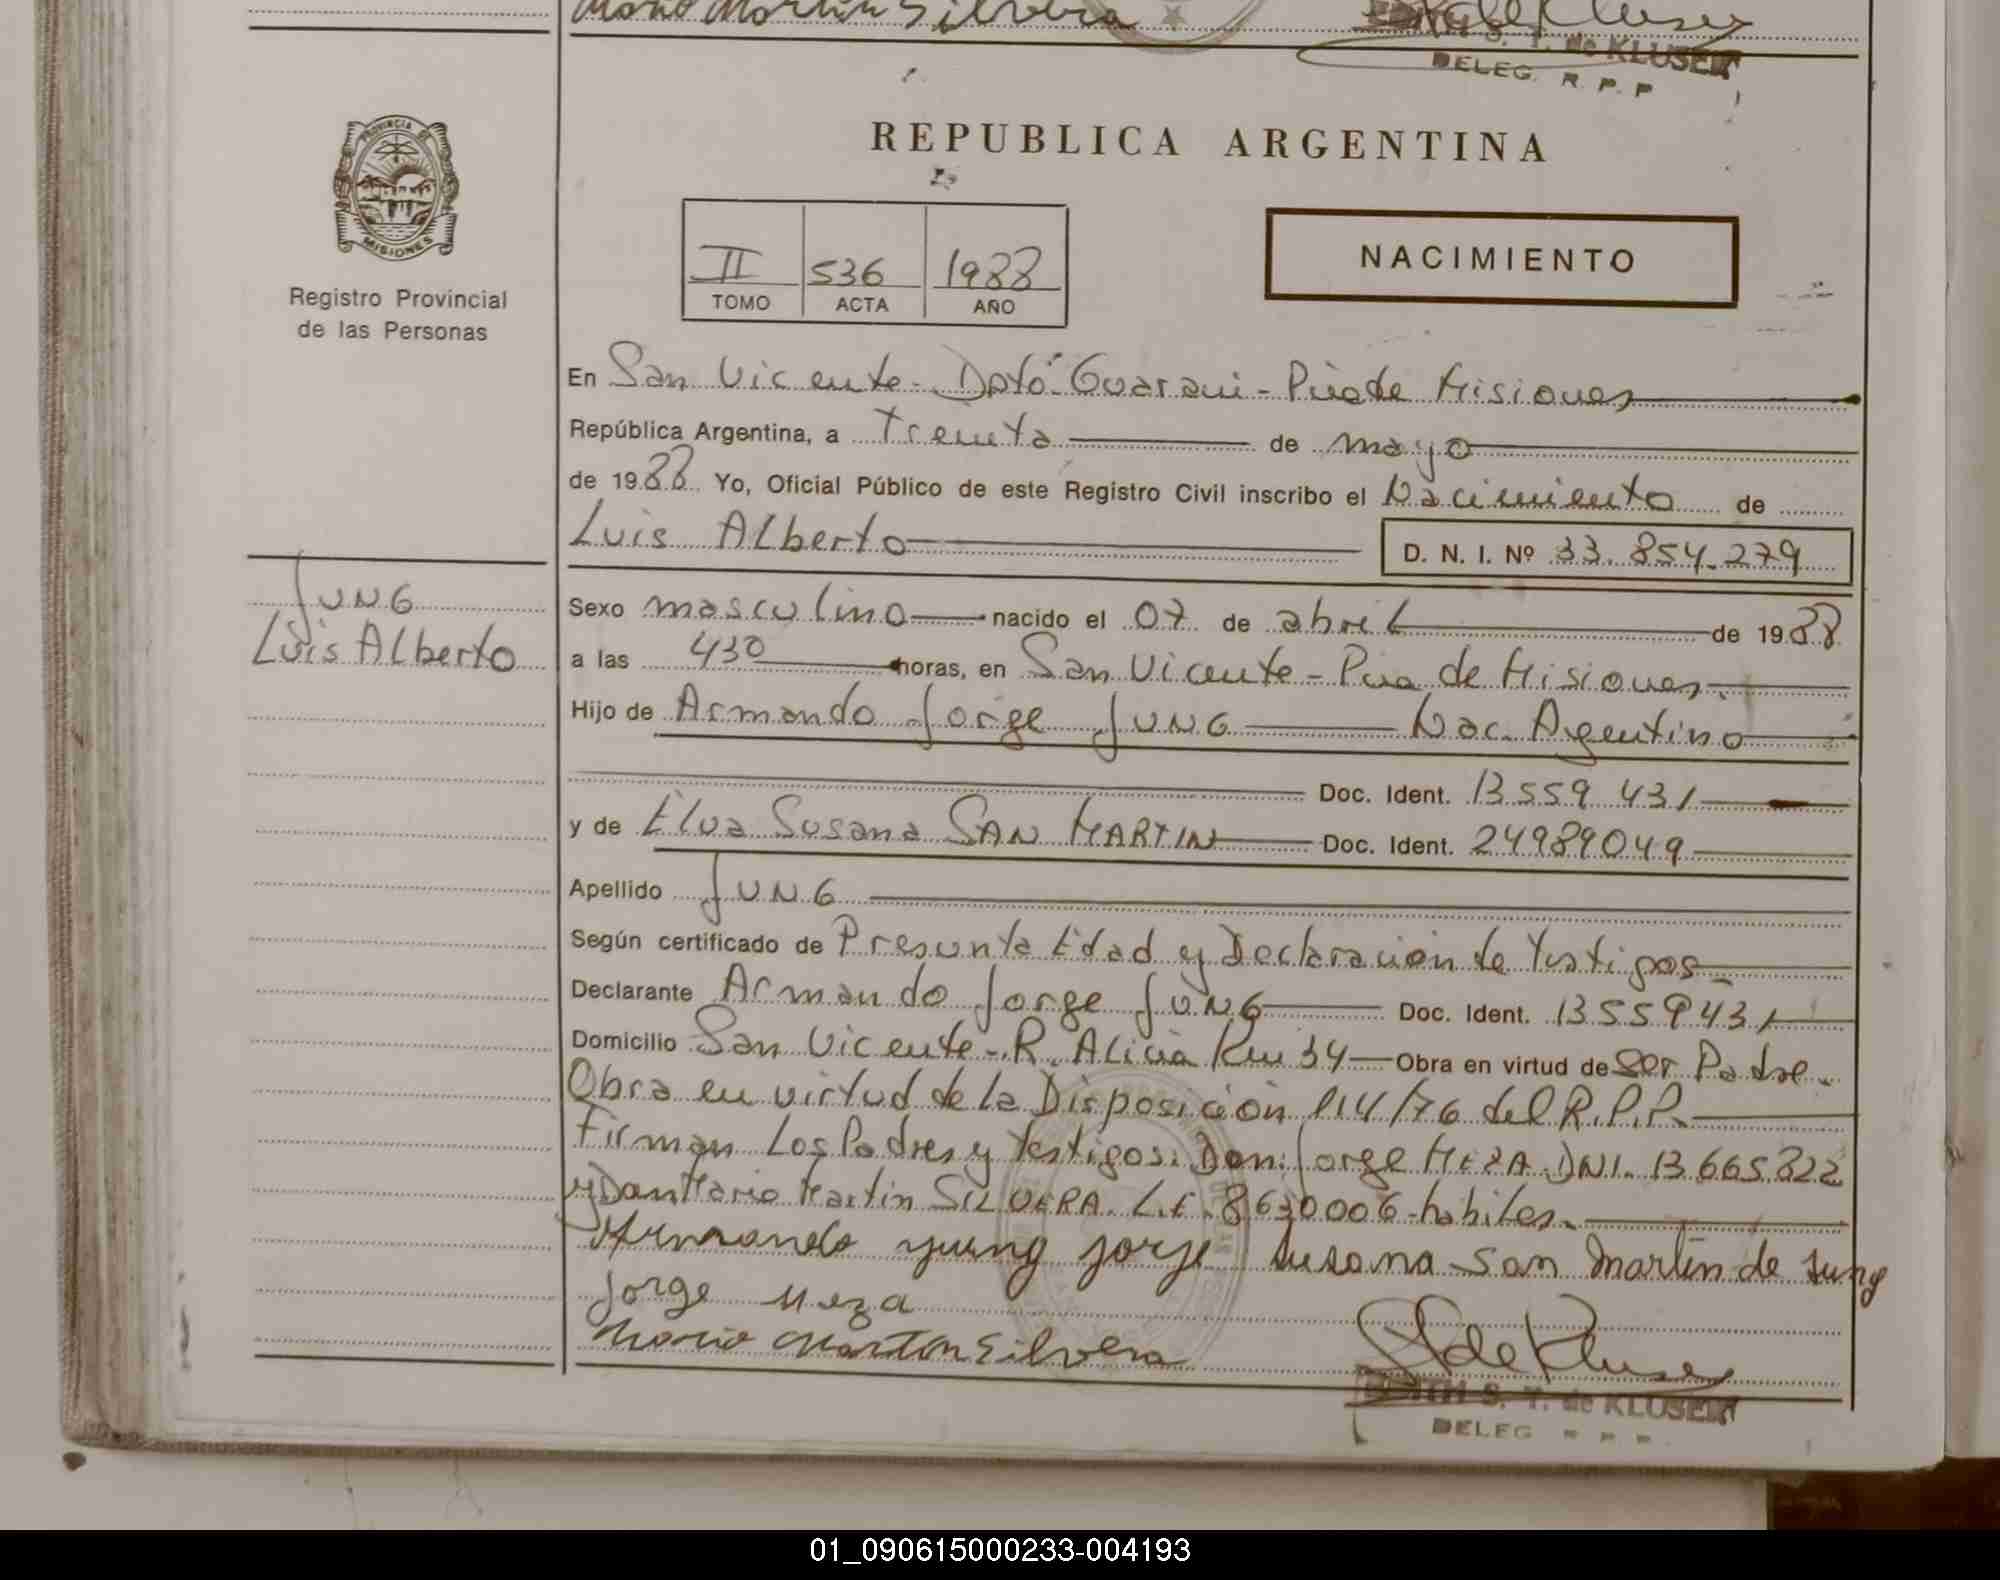 Mario Martin Silvera
EDITH S. T. de KLUSER
DELEG. R. P. P
PROVINCIA DE
MISIONES
Registro Provincial
de las Personas
REPUBLICA ARGENTINA
II 536 1988
TOMO ACTA AÑO
NACIMIENTO
En San Vicente - Dpto Guarani - Pcia de Misiones
República Argentina, a Treinta de mayo
de 1988 Yo, Oficial Público de este Registro Civil inscribo el Nacimiento de
Luis Alberto D. N. I. Nº 33.854.279
JUNG
Luis Alberto
Sexo masculino nacido el 07 de abril de 1988
a las 430 horas, en San Vicente - Pcia de Misiones.
Hijo de Armando Jorge JUNG Nac. Argentino
Doc. Ident. 13559 431
y de Elva Susana SAN MARTIN Doc. Ident. 24989049
Apellido JUNG
Según certificado de Presunta Edad y Declaracion de Testigos
Declarante Armando Jorge JUNG Doc. Ident. 13559431
Domicilio San Vicente - R. Alicia Km 34 Obra en virtud de ser Padre.
Obra en virtud de la Disposición 114/76 del R.P.P.
Firman Los Padres y Testigos: Don: Jorge MEZA DNI. 13.665.822
y Don Mario Martin SILVERA. L.E. 8630006 habiles.
Armando yung jorje Susana San Martin de Jung
Jorge Meza
Mario Martin Silvera
EDITH S. T. de KLUSER
DELEG R P P
01_090615000233-004193